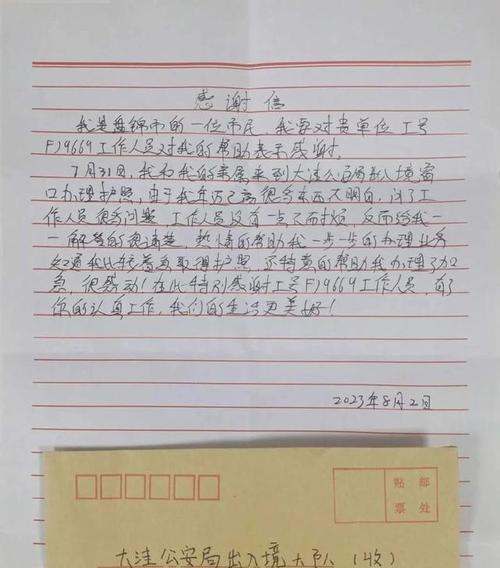 感谢信
我是盘锦市的一位市民，我要对贵单位工号
FJ9669工作人员对我的帮助表示感谢。
7月31日，我和我的亲属来到大洼公安局出入境窗
口办理护照，由于我年历已高很多东西不明白，问了工
作人员很多问题，工作人员没有一点不耐烦，反而给我一
一解答的很清楚，热情的帮助我一步一步的办理业务
知道我比较着急取得护照，还特意的帮助我办理了加
急，很感动！在此特别感谢工号FJ9669工作人员，有了
你的认真工作，我们的生活更美好！
2023年8月2日
贴 邮
票 处
大洼公安局出入境大队（收）